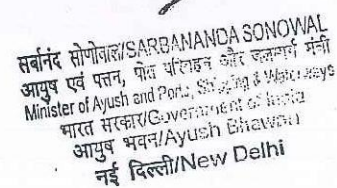 सर्बानंद सोणोवाल/SARBANANDA SONOWAL
आयुष एवं पत्तन, पोत परिवहन और जलमार्ग मंत्री
Minister of Ayush and Ports, Shipping & Waterways
भारत सरकार/Government of India
आयुष भवन/Ayush Bhawan
नई दिल्ली/New Delhi